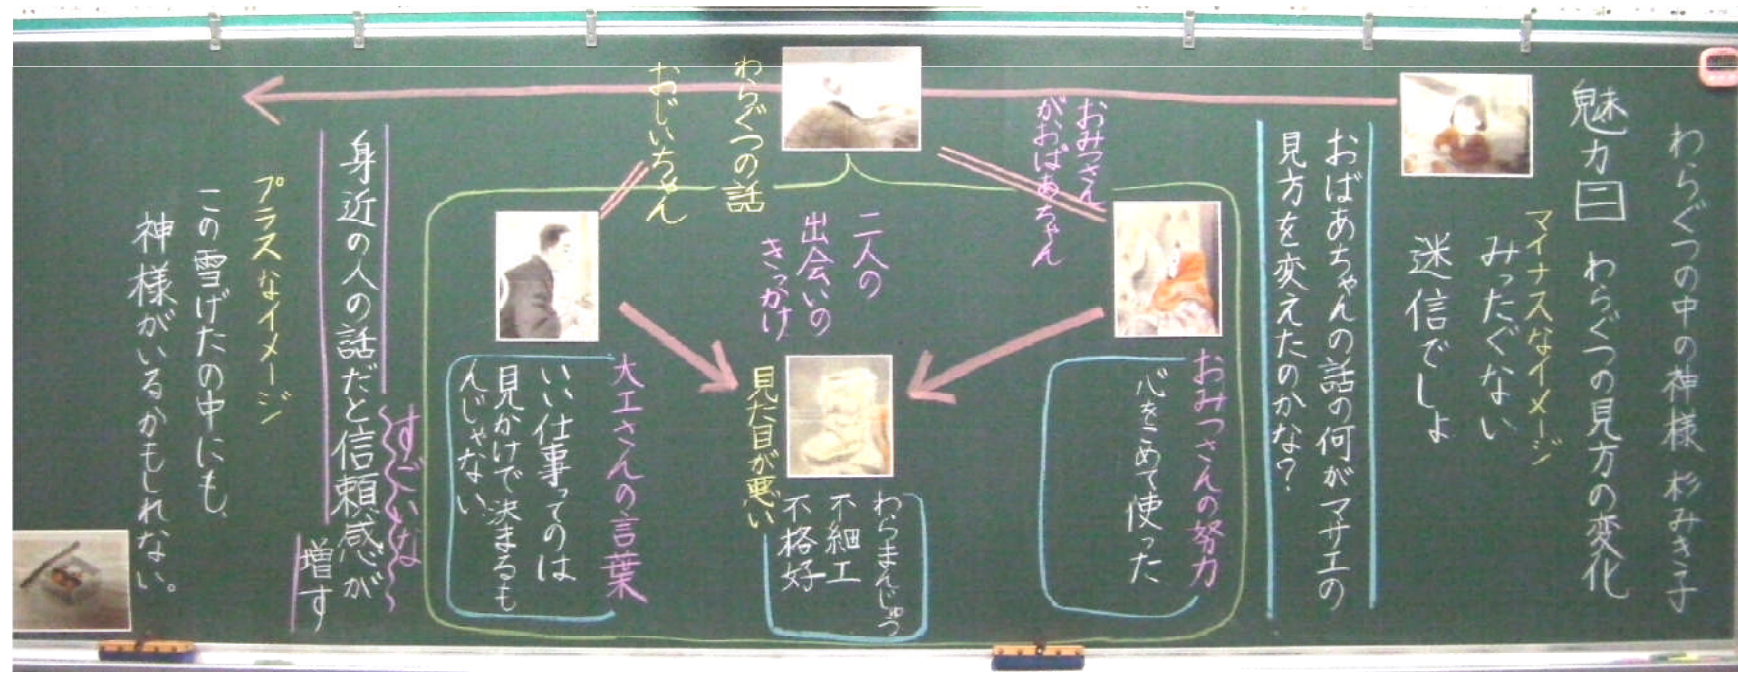 わらぐつの中の神様 杉みき子
魅力二 わらぐつの見方の変化
マイナスなイメージ
みったぐない
迷信でしょ
おばあちゃんの話の何がマサエの
見方を変えたのかな?
おみつさん
がおばあちゃん
おみつさんの努力
心をこめて使った
わらぐつの話
おじいちゃん
二人の
出会いの
きっかけ
見た目が悪い
わらまんじゅう
不細工
不格好
大工さんの言葉
いい仕事ってのは
見かけで決まるも
んじゃない
すごいな
身近の人の話だと信頼感が
増す
プラスなイメージ
この雪げたの中にも、
神様がいるかもしれない。